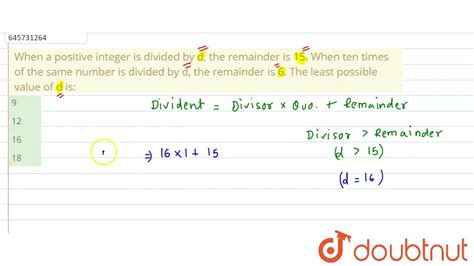 645731264
When a positive integer is divided by d, the remainder is 15. When ten times
of the same number is divided by d, the remainder is 6. The least possible
value of d is:
9
12
16
18
Divident = Divisor × Quo. + Remainder
Divisor > Remainder
(d > 15)
⇒ 16 × 1 + 15
(d = 16)
doubtnut